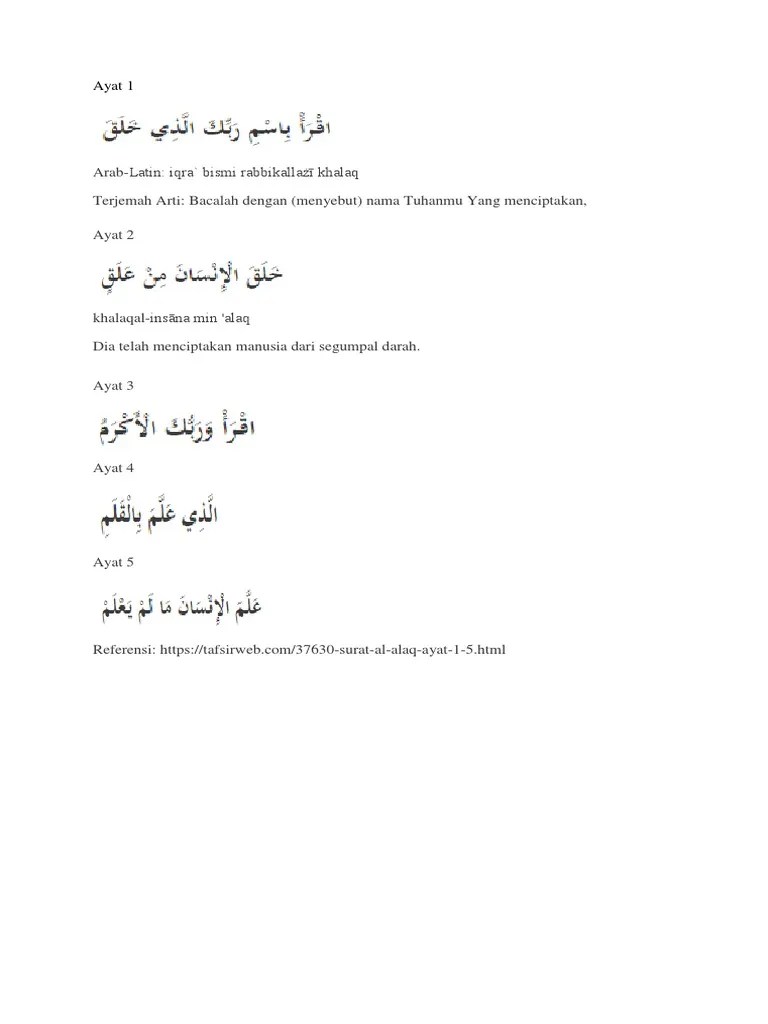 Ayat 1
اقْرَأْ بِاسْمِ رَبِّكَ الَّذِي خَلَقَ
Arab-Latin: iqra` bismi rabbikallażī khalaq
Terjemah Arti: Bacalah dengan (menyebut) nama Tuhanmu Yang menciptakan,
Ayat 2
خَلَقَ الْإِنْسَانَ مِنْ عَلَقٍ
khalaqal-insāna min 'alaq
Dia telah menciptakan manusia dari segumpal darah.
Ayat 3
اقْرَأْ وَرَبُّكَ الْأَكْرَمُ
Ayat 4
الَّذِي عَلَّمَ بِالْقَلَمِ
Ayat 5
عَلَّمَ الْإِنْسَانَ مَا لَمْ يَعْلَمْ
Referensi: https://tafsirweb.com/37630-surat-al-alaq-ayat-1-5.html